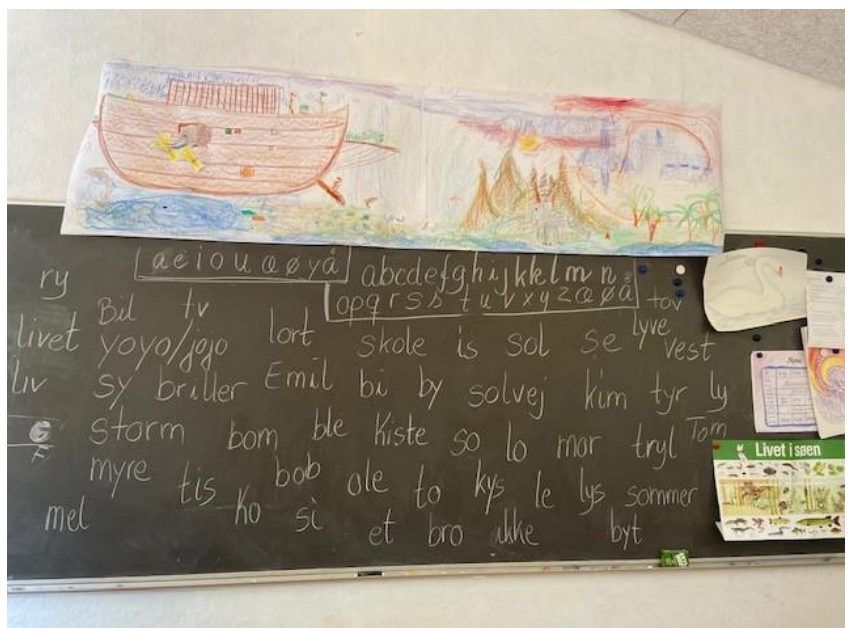 a e i o u æ ø y å
abcdefghijkklmn
opqrsstuvxyzæøå
ry Bil tv lort tov
livet yoyo/jojo skole is sol se lyve vest
liv sy briller Emil bi by solvej kim tyr ly
storm bom ble kiste so lo mor tryl Tom
myre tis bob ole to kys le lys sommer
mel ko si et bro akke byt
Livet i søen